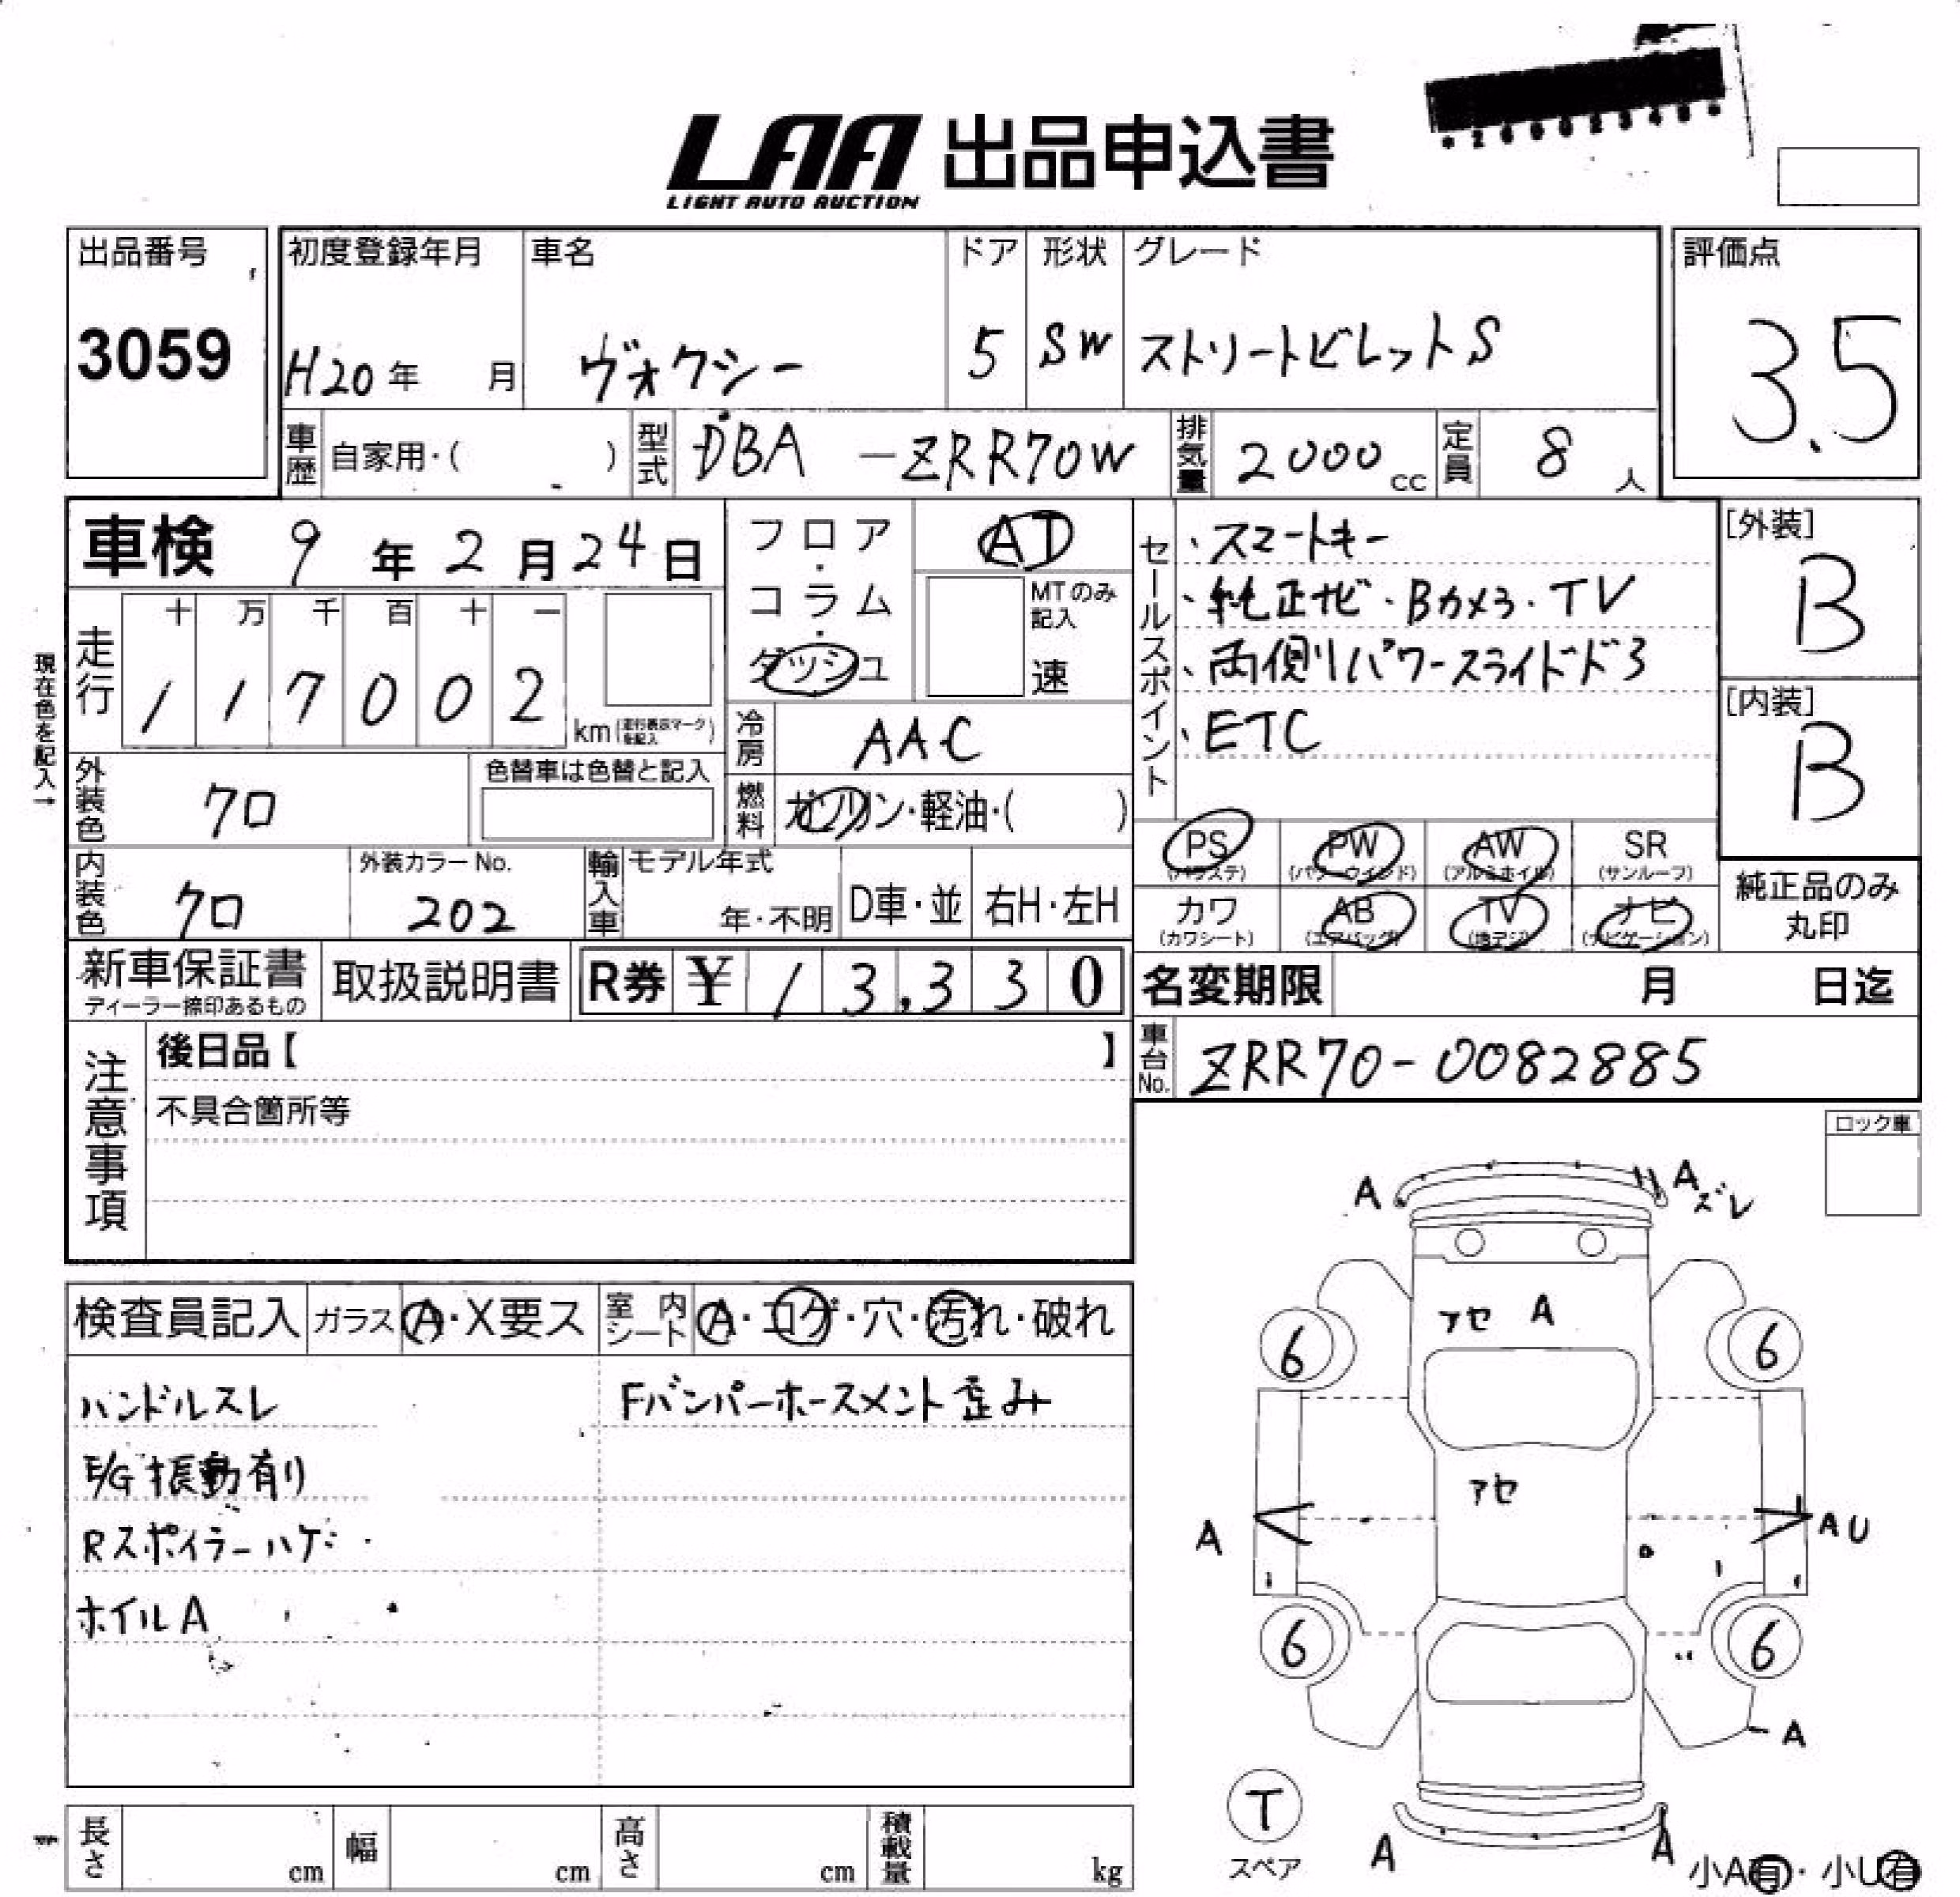 LAA 出品申込書
LIGHT AUTO AUCTION
出品番号
3059
初度登録年月
H20年 月
車名
ヴォクシー
ドア
5
形状
SW
グレード
ストリートビレットS
評価点
3.5
車歴 自家用・( )
型式 DBA -ZRR70W
排気量 2000cc
定員 8人
車検 9年2月24日
フロア・コラム・ダッシュ
AT
MTのみ記入
速
セールスポイント
・スマートキー
・純正ナビ・Bカメラ・TV
・両側パワースライドドア
・ETC
[外装]
B
[内装]
B
現在色を記入→
走行
十 万 千 百 十 一
1 1 7 0 0 2 km(走行表示マークを記入)
冷房 AAC
外装色 クロ
色替車は色替と記入
燃料 ガソリン・軽油・( )
PS (パワステ)
PW (パワーウインド)
AW (アルミホイル)
SR (サンルーフ)
カワ (カワシート)
AB (エアバッグ)
TV (地デジ)
ナビ (ナビゲーション)
純正品のみ
丸印
内装色 クロ
外装カラーNo.
202
輸入車
モデル年式
年・不明
D車・並
右H・左H
新車保証書
ディーラー捺印あるもの
取扱説明書
R券 ¥ 13,330
名変期限 月 日迄
注意事項
後日品【 】
不具合箇所等
車台No. ZRR70-0082885
ロック車
A
A ズレ
アセ A
6
6
アセ
A
AU
6
6
A
T
スペア
A
A
小A有・小U有
検査員記入
ガラス A・X要ス
室内シート A・コゲ・穴・汚れ・破れ
ハンドルスレ
Fバンパーホースメント歪み
E/G振動有り
Rスポイラーハゲ
ホイルA
長さ cm
幅 cm
高さ cm
積載量 kg